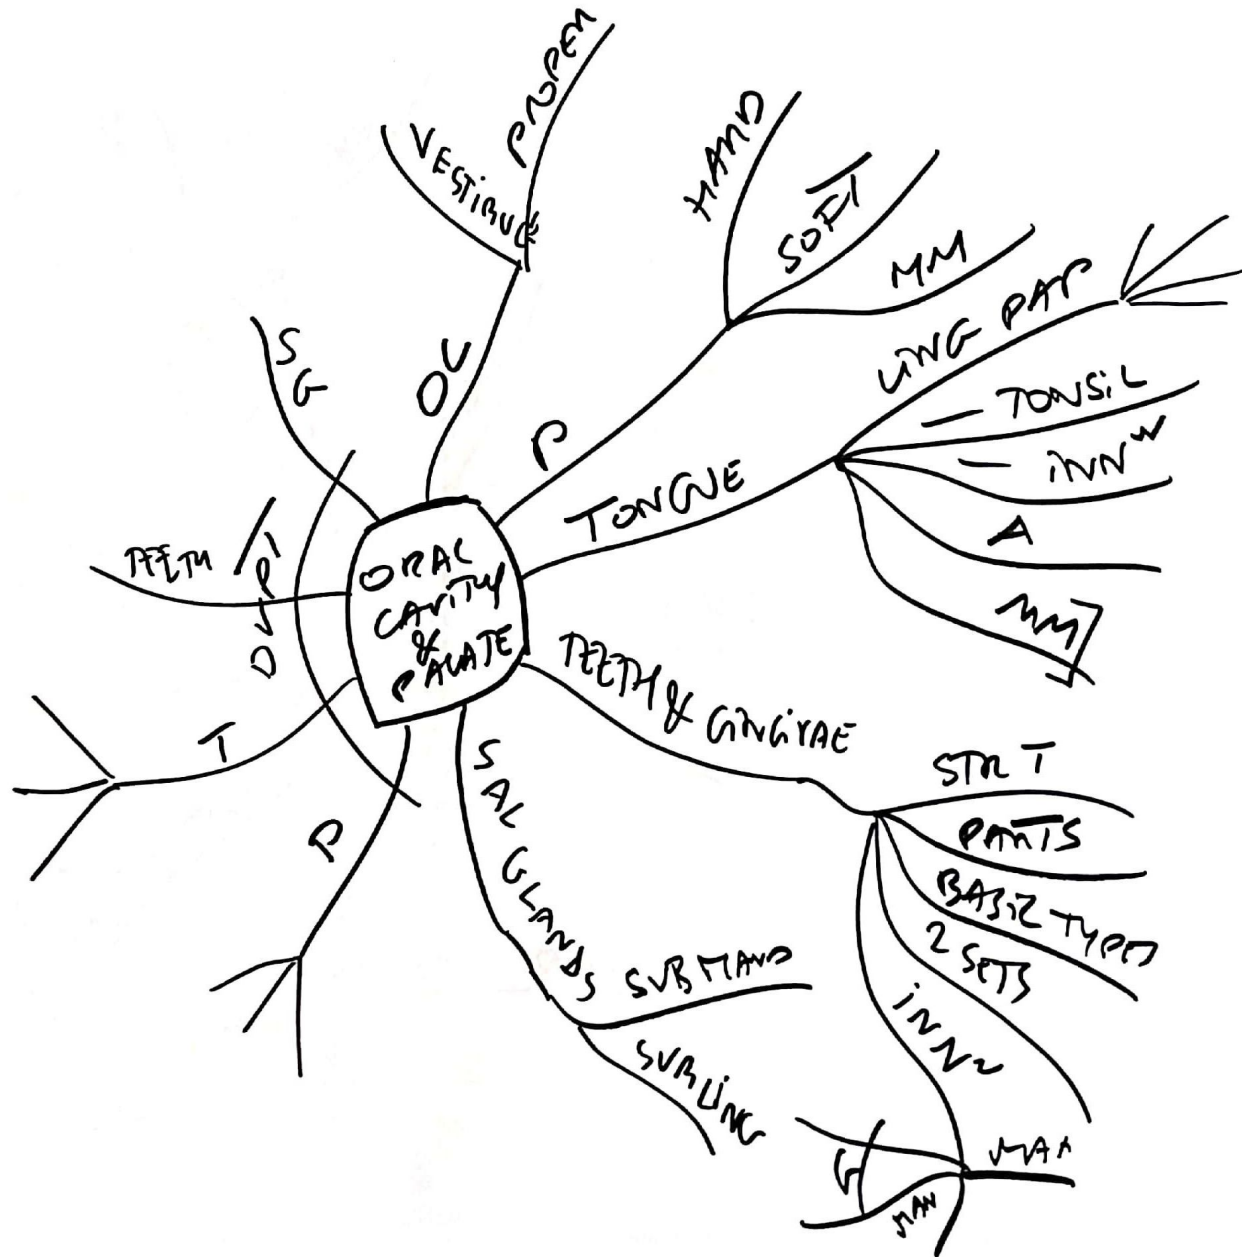 ORAL
CAVITY
&
PALATE
OC
VESTIBULE
PROPER
P
HARD
SOFT
MM
TONGUE
LING PAP
— TONSIL
— INN
A
MM
TEETH & GINGIVAE
STR T
PARTS
BASIC TYPES
2 SETS
INN
MAX
MAN
G
SAL GLANDS
SUBMAND
SUBLING
DVPT
P
T
TEETH
SG